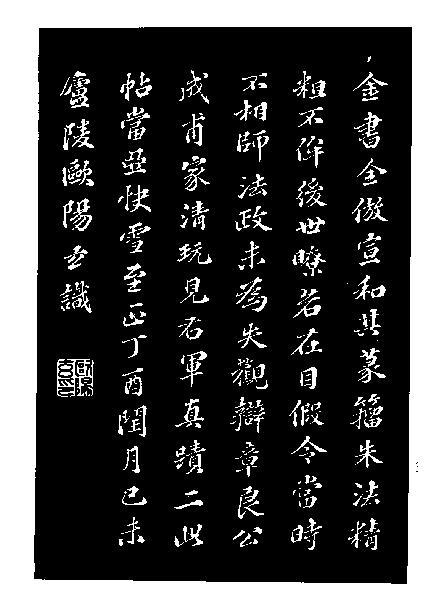 金書全倣宣和其篆籀朱法精
粗不侔後世瞭若在目假令當時
不相師法政未為失觀辯章良公
成甫家清玩見右軍真蹟二此
帖當亞快雪至正丁酉閏月己未
廬陵歐陽玄識